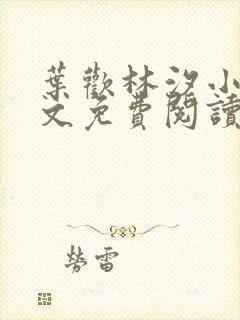 葉歡林汐小
文免費閱讀
勞雷